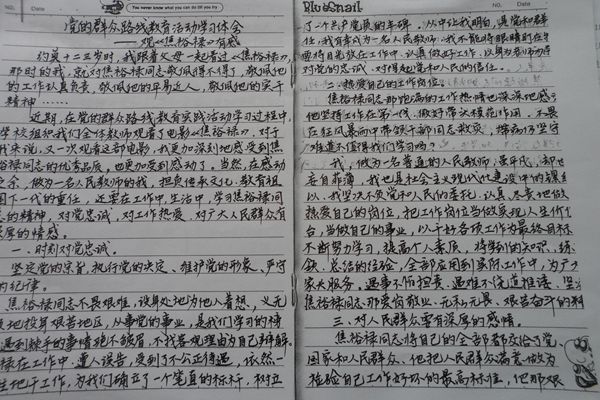 You never know what you can do till you try
党的群众路线教育活动学习体会
——观《焦裕禄》有感
约莫十二三岁时,我跟着父母一起看过《焦裕禄》
那时的我,就对焦裕禄同志敬佩得不得了,敬佩他
的工作认真负责,敬佩他的平易近人,敬佩他的实干
精神……
近期,在党的群众路线教育实践活动学习过程中,
学校组织我们全体教师观看了电影《焦裕禄》,对于
我来说,又一次观看这部电影,我更加深刻地感受到焦
裕禄同志的优秀品质,也更加受到感动了。当然,在感动
之余,做为一名人民教师的我,担负传承文化、教育祖
国下一代的重任,还要在工作中,生活中,学习焦裕禄同
志的精神,对党忠诚,对工作热爱,对广大人民群众有
深厚的情感。
一、时刻对党忠诚。
坚定党的宗旨,执行党的决定、维护党的形象、严守
的纪律。
焦裕禄同志不畏艰难,设身处地为他人着想,义无
地投身艰苦地区,从事党的事业,是我们学习的榜
遇到棘手的事情绝不皱眉,不找客观理由为自己辩解
禄在工作中,遭人误告,受到了不公正待遇,依然一
地干工作,为我们确立了一个笔直的标杆,树立
BlueSnail
NO.
DATE
了一个共产党员的丰碑。从中让我明白,
任,我有幸成为一名人民教师,我不能
要将目光放在工作中,认真做好工作,以身为
对党的忠诚,对得起党和人民的信任。
二、热爱自己的工作岗位。
焦裕禄同志那饱满的工作热情也深深地感
他坚持工作在第一线,做好带头模范作用,不畏
在狂风暴雨中带领干部同志救灾,
难道不值得我们学习吗?
我,做为一名普通的人民教师,
妄自菲薄,我也是社会主义现代化建设中的
以,我坚决不受党和人民的委托,认真负责地做
热爱自己的岗位,把工作岗位当做实现人生价值
台,当做自己的事业,以干好各项工作为最终目标
不断努力学习,提高个人素质,将学到的知识、练
总活的经验,全部应用到实际工作中,为广大
家长服务。遇事不怕担责、遇难不海道推诿、坚
焦裕禄同志那爱岗敬业、无私无畏、艰苦奋斗的精
三、对人民群众要有深厚的感情。
焦裕禄同志将自己的全部都交给了党、
国家和人民群众,他把人民群众满意做为
检验自己工作好坏的最高标准,他那艰